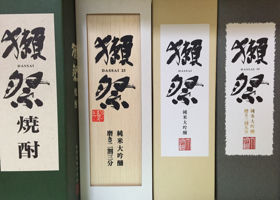 獺祭
焼酎
獺祭
焼酎
獺祭
DASSAI 23
純米大吟醸
磨き二割三分
獺祭
DASSAI
純米大吟醸
獺祭
DASSAI
純米大吟醸
磨き二割三分